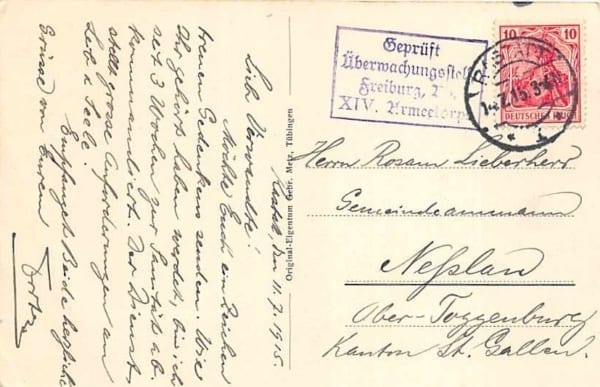 Rastatt den 11.7.1915.
Lieb Verwandte!
Möchte Euch ein Zeichen
treuen Gedenkens senden. Wie
Ihr gehört haben werdet, bin ich
seit 3 Wochen zur Sanität ab-
kommandiert. Der Dienst
stellt grosse Anforderungen an
Leib u. Seele.
Empfanget Beide herzliche
Grüsse von Eurem
Original-Eigentum Gebr. Metz, Tübingen
Geprüft
Überwachungsstelle
Freiburg,
XIV. Armeekorps
10 10
DEUTSCHES REICH
RASTATT
Herrn Lieberherr
Gemeindeammann
Neßlau
Ober-Toggenburg
Kanton St. Gallen.